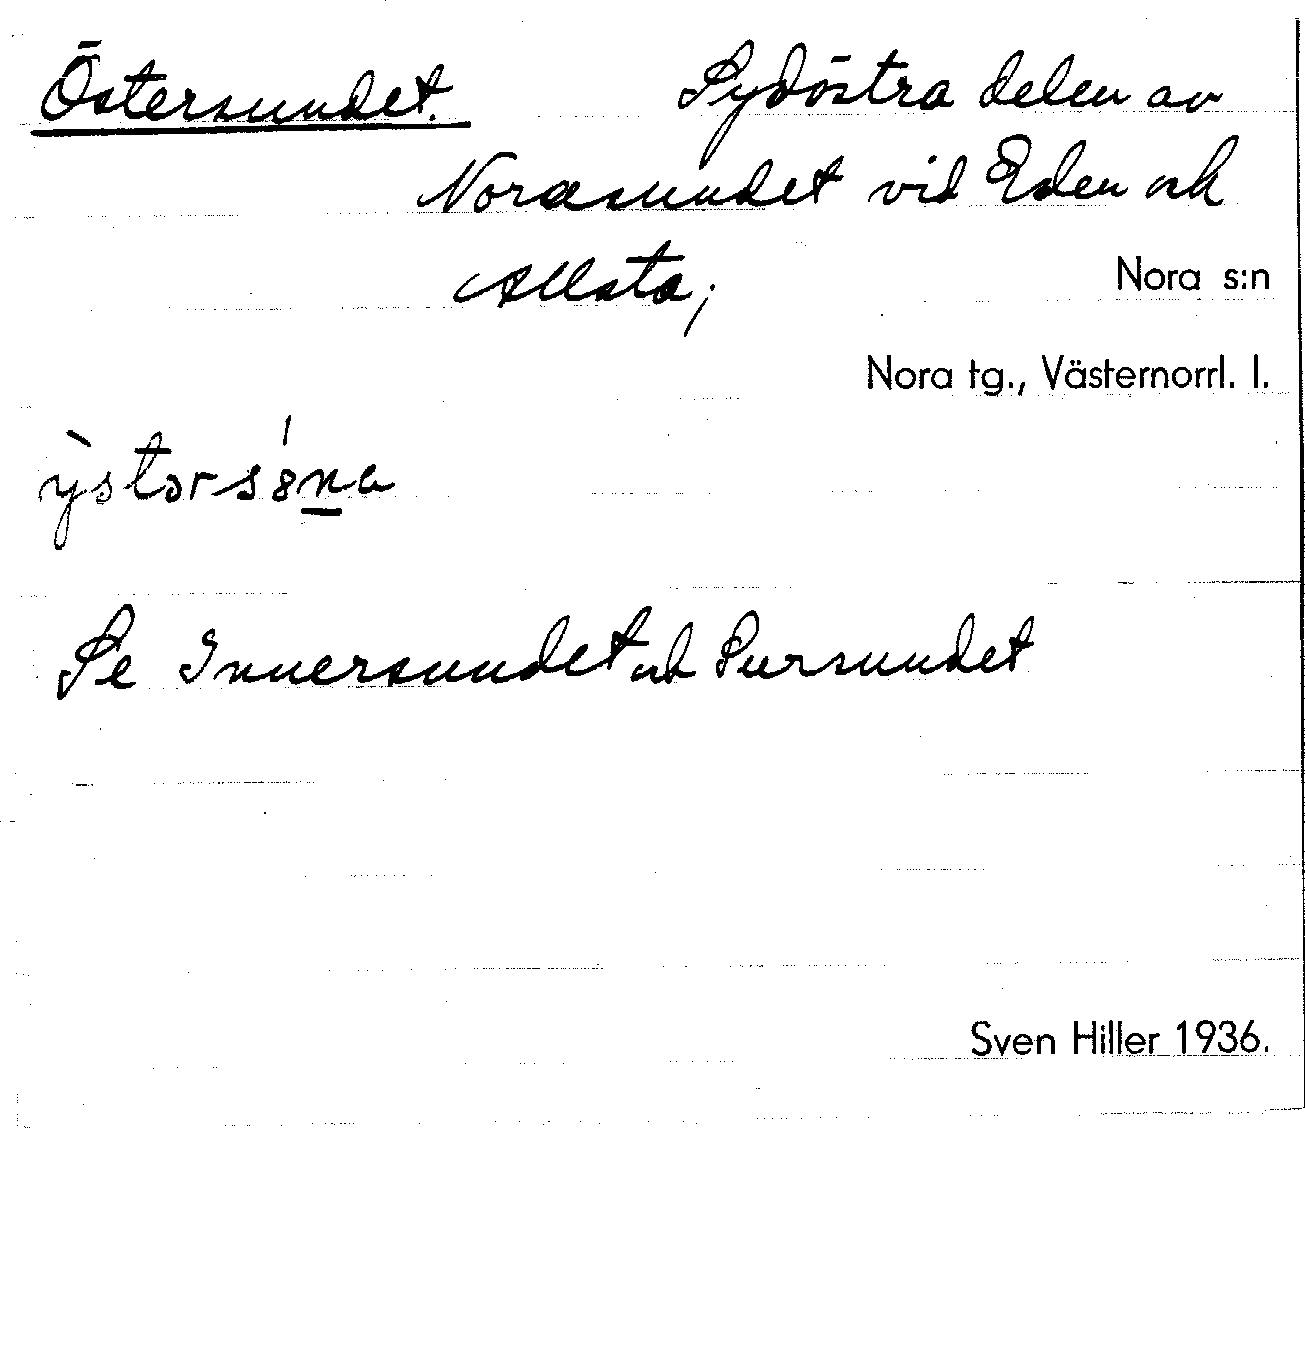 Östersundet. Sydöstra delen av
Norasundet vid Eden och
Allsta; Nora s:n
Nora tg., Västernorrl. l.
Se Innersundet och Sursundet
Sven Hiller 1936.